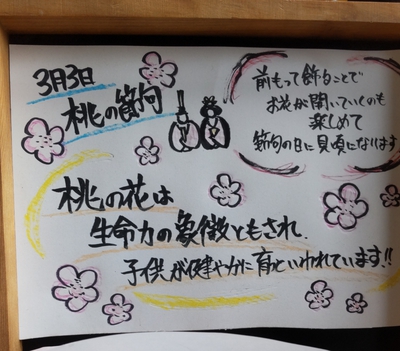 3月3日
桃の節句
前もって飾ることで
お花が開いていくのも
楽しめて
節句の日に見頃になります
桃の花は
生命力の象徴ともされ、
子供が健やかに育つといわれています!!